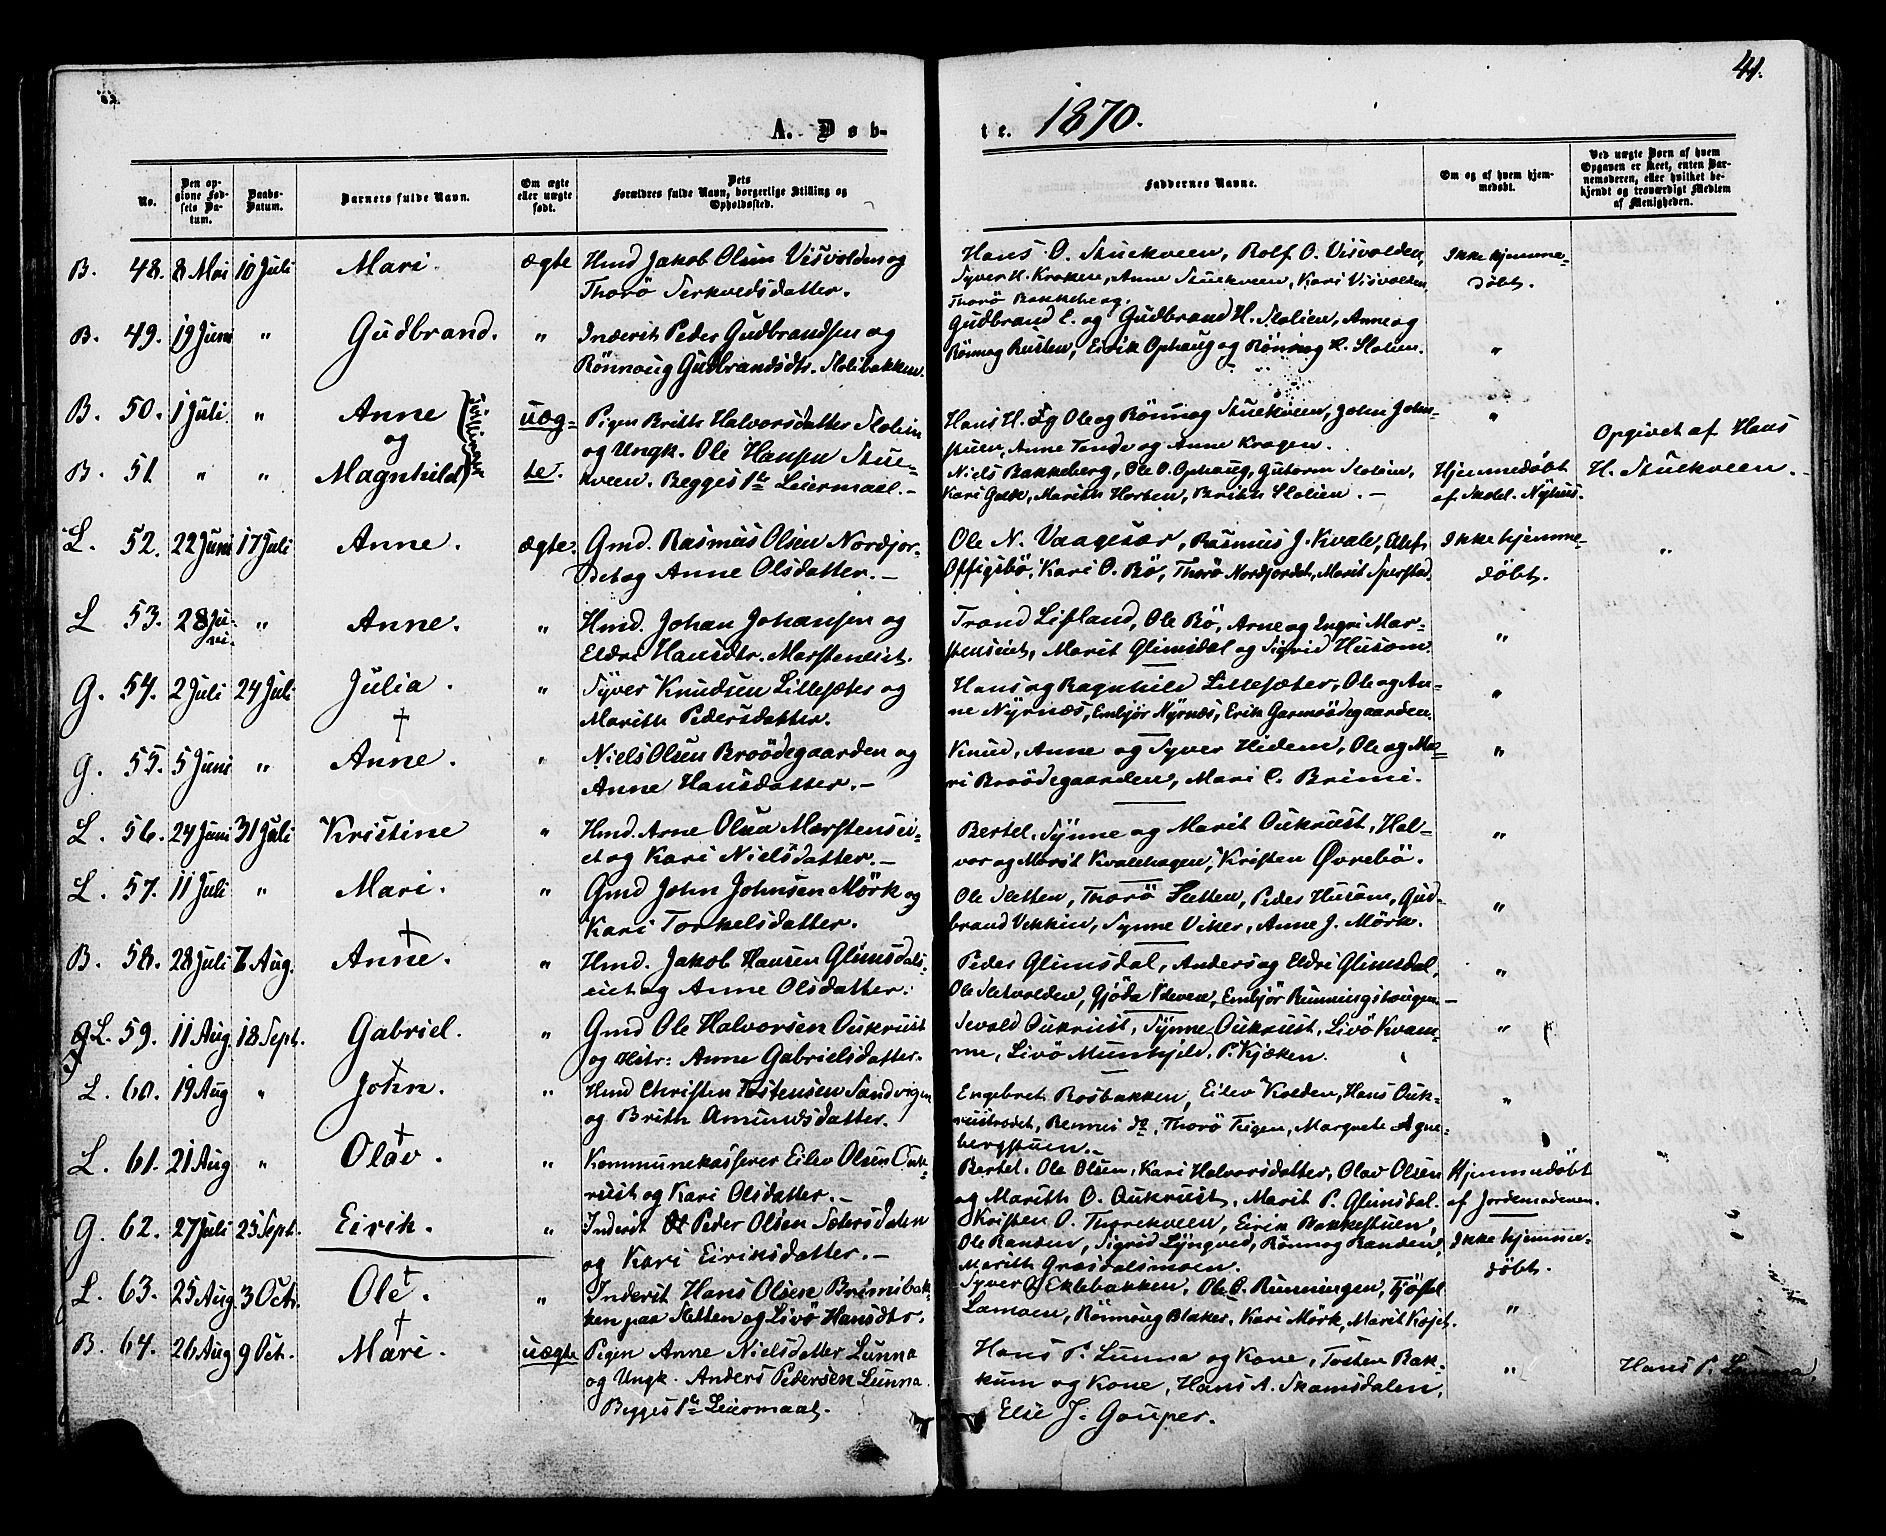 41.
A. Døb-
te. 1870.
No.
Den op-
givne Fød-
sels Da-
tum.
Daabs-
Datum.
Barnets fulde Navn.
Om ægte
eller uægte
født.
Dets
Forældres fulde Navn, borgerlige Stilling og
Opholdssted.
Faddernes Navne.
Om og af hvem hjem-
medøbt.
Ved uægte Børn af hvem
Opgaven er skeet, enten Bar-
nemoderen, eller hvilket be-
kjendt og troværdigt Medlem
af Menigheden.
B. 48. 8 Mai 10 Juli Mari. ægte Hmd Jakob Olsen Visvolden og
Thorö Serkvedsdatter.
Hans O. Stuekveen, Rolf O. Visvolden,
Syver H. Kroken, Anne Stuekveen, Kari Visvolden,
Thorö Bakkeberg.
Ikke hjemme-
døbt.
B. 49. 19 Juni " Gudbrand. " Inderst Peder Gudbrandsen og
Rönnoug Gudbrandsdtr. Slolibakken.
Gudbrand E. og Gudbrand H. Slolien, Anne og
Rønnog Rusten, Eirik Ophaug og Rønnog H. Slolien.
"
B. 50. 1 Juli. " Anne
og
Tvillinger
uæg-
te.
Pigen Brith Halvorsdatter Slolien
og Ungk. Ole Hansen Stue-
kveen. Begges 1ste Leiermaal.-
Hans H. og Ole og Rønnog Stuekveen, John John-
stuen, Anne Tande og Anne Kragen.
"
B. 51. " " Magnhild
Niels Bakkeberg, Ole O. Ophaug, Gutorm Slolien,
Kari Galde, Marith Horten, Brith Slolien. -
Hjemmedøbt
af Skol. Nyhus.
Opgivet af Hans
H. Stuekveen.
L. 52. 22 Juni 17 Juli Anne. ægte. Gmd. Rasmus Olsen Nordjor-
det og Anne Olsdatter.-
Ole N. Vaagesar, Rasmus J. Kvale, Ellef
Offigsbö, Kari O. Bö, Thorö Nordjordet, Marit Sperstad.
Ikke hjemme-
døbt.
"
L 53. 28 Ju-
ni. " Anne. " Hmd. Johan Johansen og
Eldri Hansdtr. Marsteneiet.
Trond Lifland, Ole Bö, Arne og Engri Mar-
steneiet, Marit Glimsdal og Sigrid Husom.
"
G. 54. 2 Juli 24 Juli Julia. " Syver Knudsen Lillesæter og
Marith Pedersdatter.
Hans og Ragnhild Lillesæter, Ole og An-
ne Nyrnæs, Embjör Nyrnæs, Erik Garmsödegaarden.
"
G. 55. 5 Juni " Anne. " Niels Olsen Broödegaarden og
Anne Hansdatter.-
Knud, Anne og Syver Hidem, Ole og Ma-
ri Broödegaarden, Mari C. Brimi.
"
L. 56. 24 Juni 31 Juli Kristine " Hmd. Arne Olsen Marstensei-
et og Kari Nielsdatter.-
Bertel, Synne og Marit Oukrust, Hal-
vor og Marit Kvalehagen, Kristen Øvrebö.
"
L. 57. 11 Juli " Mari. " Gmd John Johnsen Mörk og
Kari Torkelsdatter.
Ole Sletten, Thorö Sletten, Peder Husom, Gud-
brand Vekkin, Synne Viker, Anne J. Mörk.
"
B. 58. 28 Juli 7 Aug. Anne. " Hmd. Jakob Hansen Glimsdals-
eiet og Anne Olsdatter.
Peder Glimsdal, Anders og Eldri Glimsdal,
Ole Sletvolden, Gjöda Ildeven, Embjör Runningshaugen.
"
L. 59. 11 Aug. 18 Sept. Gabriel. " Gmd Ole Halvorsen Oukrust
og Hstr: Anne Gabrielsdatter.
Sevald Oukrust, Synne Oukrust, Livö Kvam-
me, Livö Munkjeld, P. Kjæken.
"
L. 60. 19 Aug " John. " Hmd Christen Tostensen Sandvigen
og Brith Amundsdatter.
Engebret Rosbakken, Eilev Kolden, Hans Ouk-
rustrodet, Rennus do, Thorö Teigen, Margrete Agne-
bergstuen.-
"
L. 61. 21 Aug " Olav. " Kommunekasserer Eilev Olsen Ouk-
rust og Kari Olsdatter.-
Bertel, Ole Olsen, Kari Halvorsdatter, Olav Olsen
og Marith O. Oukrust, Marit P. Glimsdal.
Hjemmedøbt
af Jordemoderen.
G. 62. 27 Juli 25 Sept. Eirik. " Inderst Peder Olsen Sætersdalen
og Kari Eiriksdatter.-
Kristen O. Thorekveen, Eirik Bakkestuen,
Ole Randen, Sigrid Lyngved, Rønnog Randen,
Marith Grøsdalsmoen.
Ikke hjemme-
døbt.
L. 63. 25 Aug 3 Octr. Ole. " Inderst Hans Olsen Brimibak-
ken paa Sletten og Livö Hansdtr.
Syver Eklebakken, Ole C. Runningen, Tjöstel
Lamoen, Rönnoug Blaker, Kari Mörk, Marit Kojet.
"
B. 64. 26 Aug 9 Oct. Mari. uægte Pigen Anne Nielsdatter Lunna
og Ungk. Anders Pedersen Lunna.
Begges 1ste Leiermaal.
Hans P. Lunna og Kone, Tosten Bak-
kum og Kone, Hans A. Skamsdalen,
Else J. Gouper.
"
Hans P. Lunna